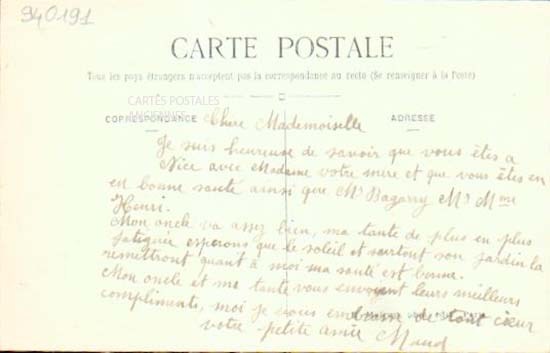 940191
CARTE POSTALE
Tous les pays étrangers n'acceptent pas la correspondance au recto (Se renseigner à la Poste)
CARTES POSTALES
ANCIENNES
CORRESPONDANCE
ADRESSE
Chere Mademoiselle
Je suis heureuse de savoir que vous êtes a
Nice avec Madame votre mere et que vous êtes en
en bonne santé ainsi que Mr Bagarry Mr Mme
Henri.
Mon oncle va assez bien, ma tante de plus en plus
fatiguée esperons que le soleil et surtout son jardin la
remettront quant à moi ma santé est bonne.
Mon oncle et ma tante vous envoyent leurs meilleurs
compliments, moi je vous embrasse de tout cœur
votre petite amie Maud